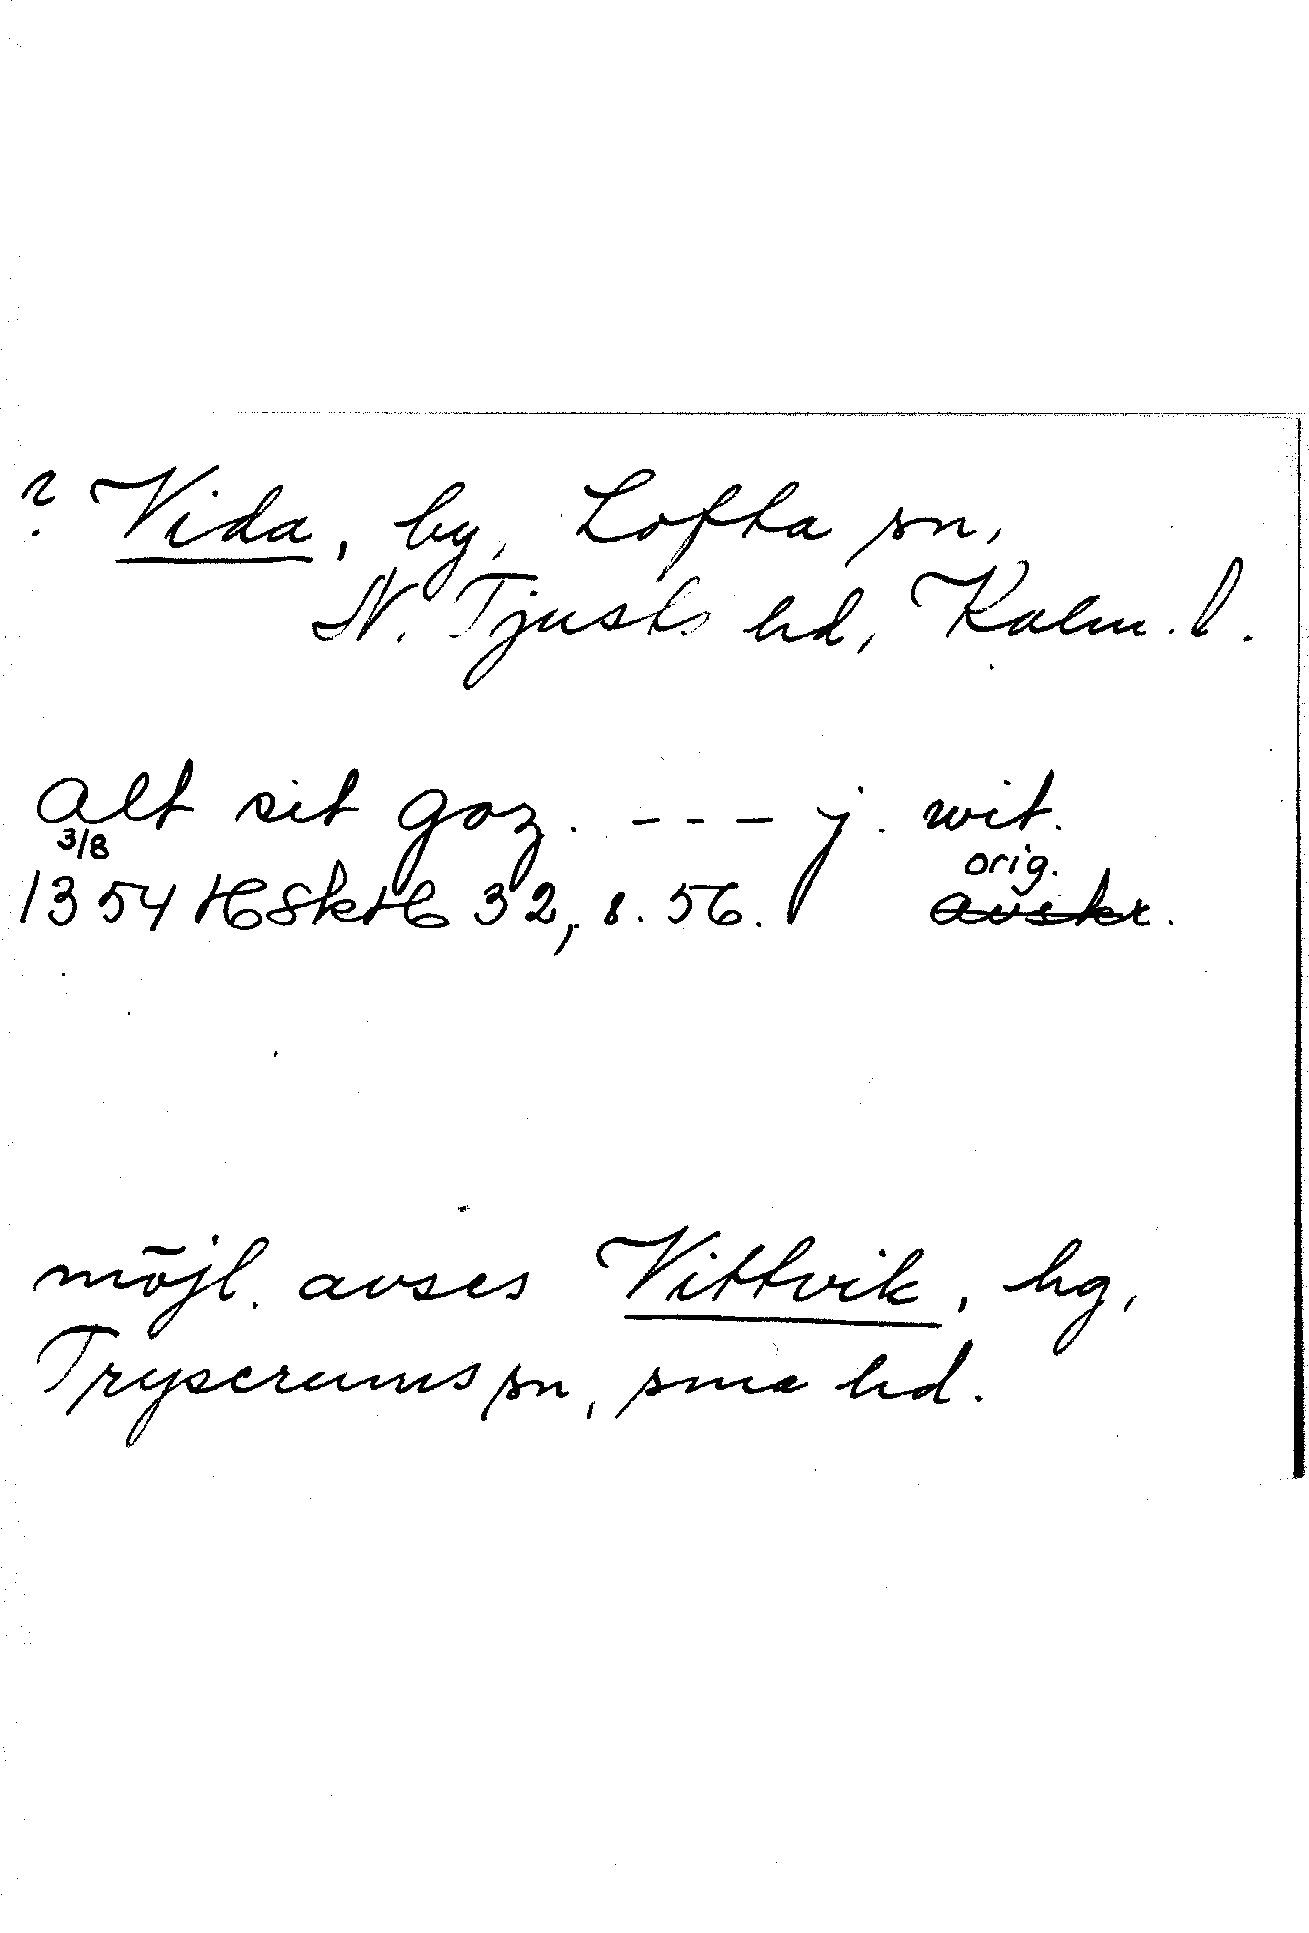 ? Vida, by, Lofta sn,
N. Tjusts hd, Kalm. l.
alt sit goz. --- j. wit.
3/8 orig.
1354 HSkH 32, s. 56. avskr.
möjl. avses Vittvik, hg,
Tryserums sn, sma hd.